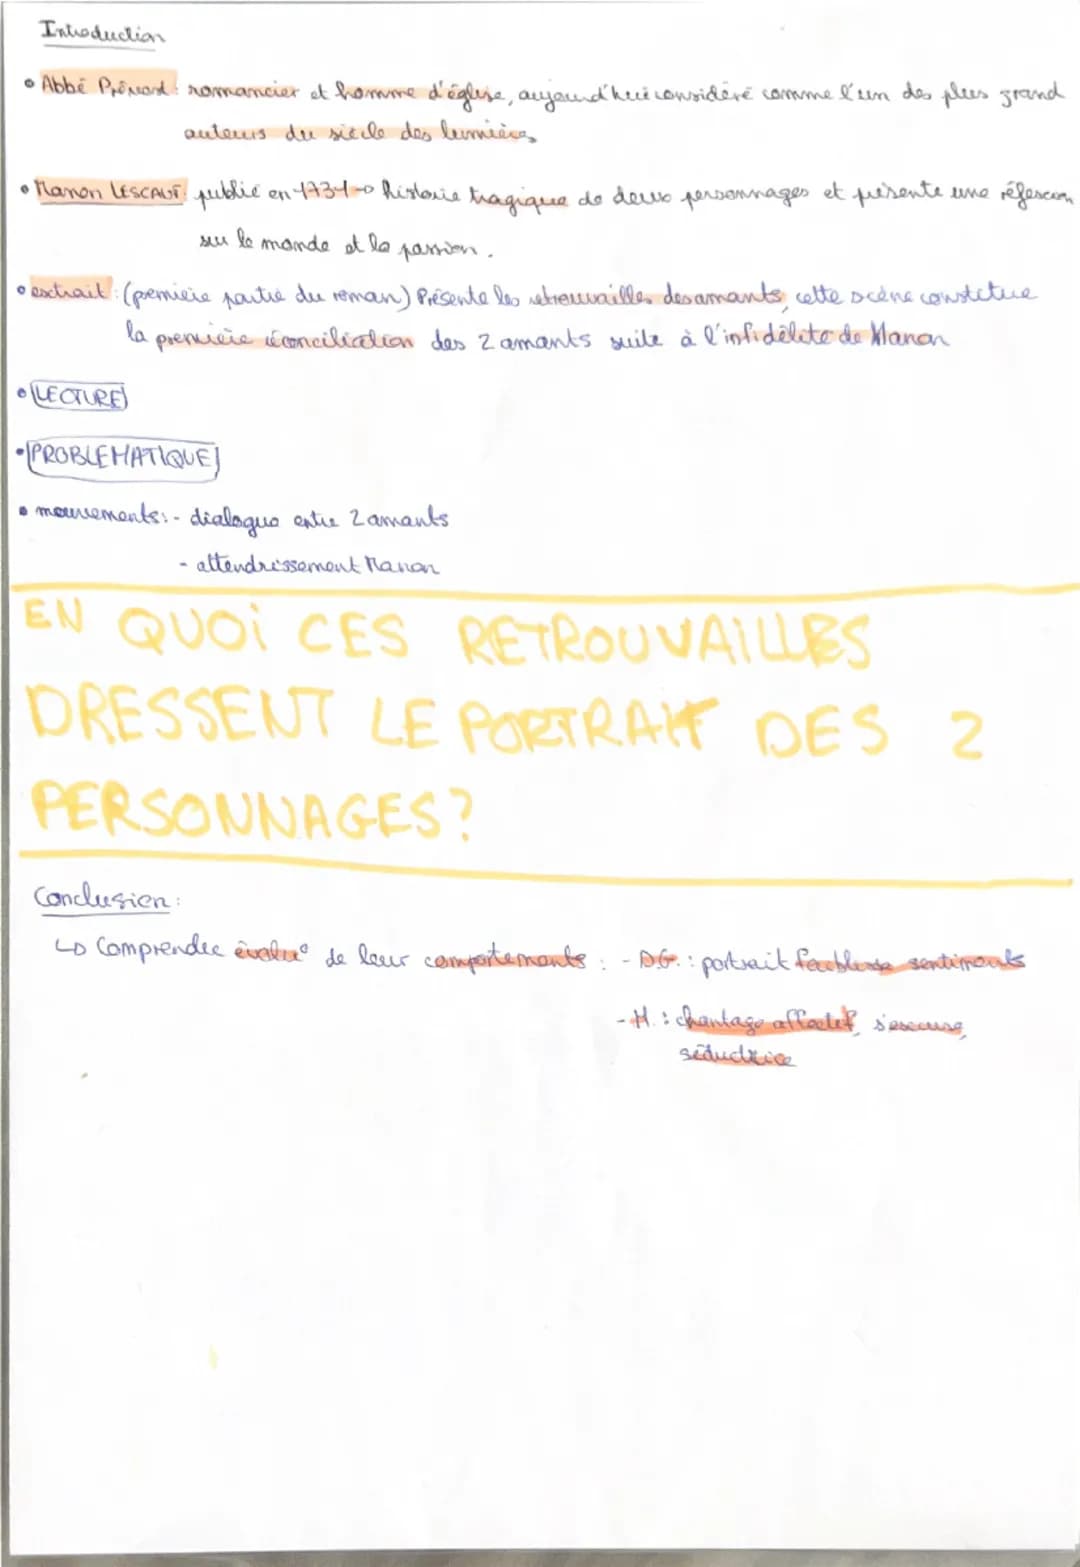 Introduction
• Abbé Prévost : romancier et homme d'église, aujourd'hui considéré comme l'un des plus grand
auteurs du siècle des lumières
• Manon LESCAUT : publié en 1731 → histoire tragique de deux personnages et présente une réflexion
sur le monde et la passion.
• extrait : (première partie du roman) Présente les retrouvailles des amants, cette scène constitue
la première réconciliation des 2 amants suite à l'infidélité de Manon
• LECTURE
• PROBLEMATIQUE
• mouvements : - dialogue entre 2 amants
- attendrissement Manon
EN QUOI CES RETROUVAILLES
DRESSENT LE PORTRAIT DES 2
PERSONNAGES ?
Conclusion :
↳ Comprendre évolu° de leur comportements : - D.G. : portrait faiblesse sentiments
- M. : chantage affectif, s'excuse,
séductrice